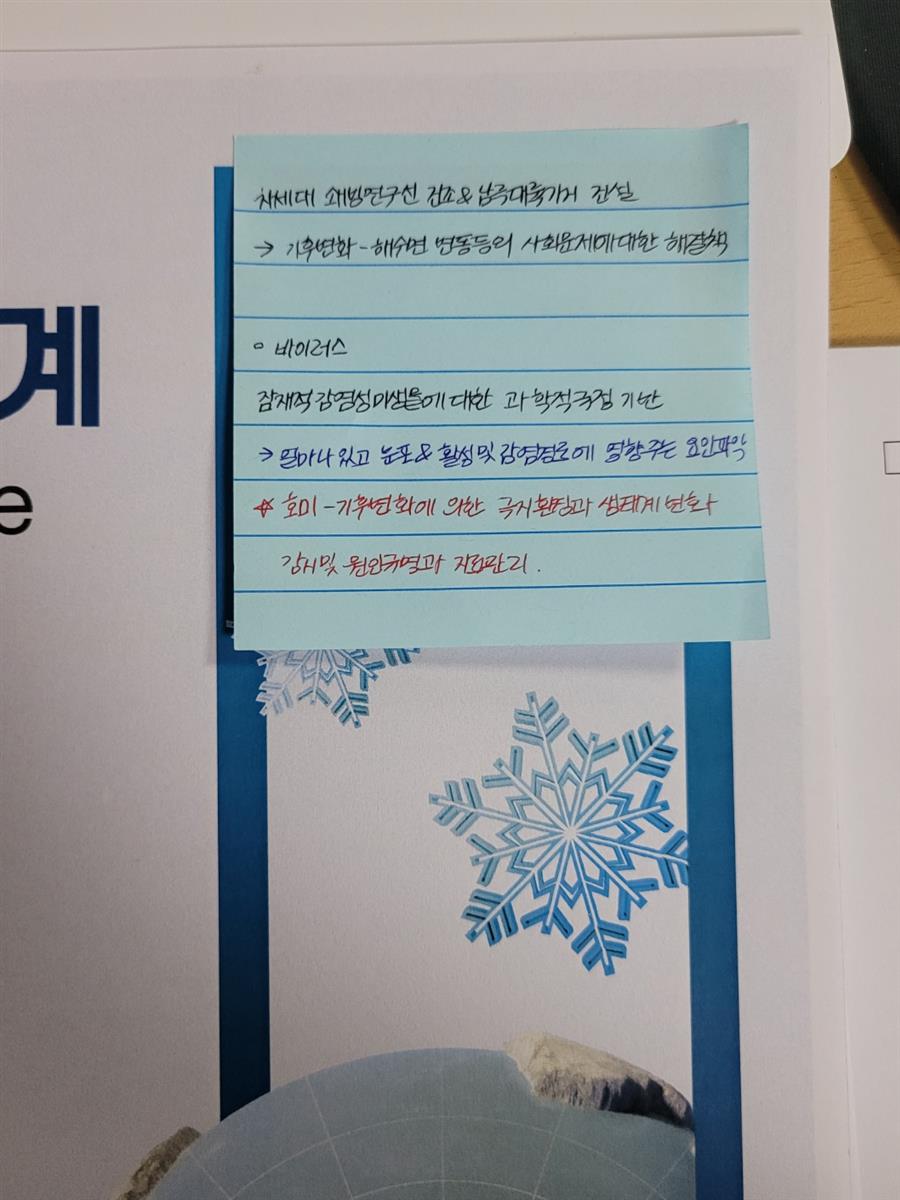 차세대 쇄빙연구선 건조&남극대륙기지 건설
→ 기후변화-해수면 변동등의 사회문제에대한 해결책
계
e
○ 바이러스
잠재적감염성미생물에 대한 과학적국정 기반
→ 얼마나 있고 분포& 활성및감염경로에 영향주는 요인파악
☆ 호미-기후변화에 의한 극지환경과 생태계변화
감시및 원인규명과 자료관리.